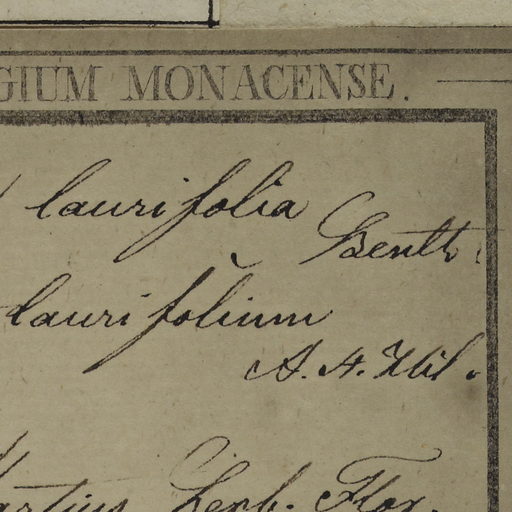 GIUM MONACENSE.
laurifolia Benth.
laurifolium
A. St. Hil.
Martius Herb. Flor.